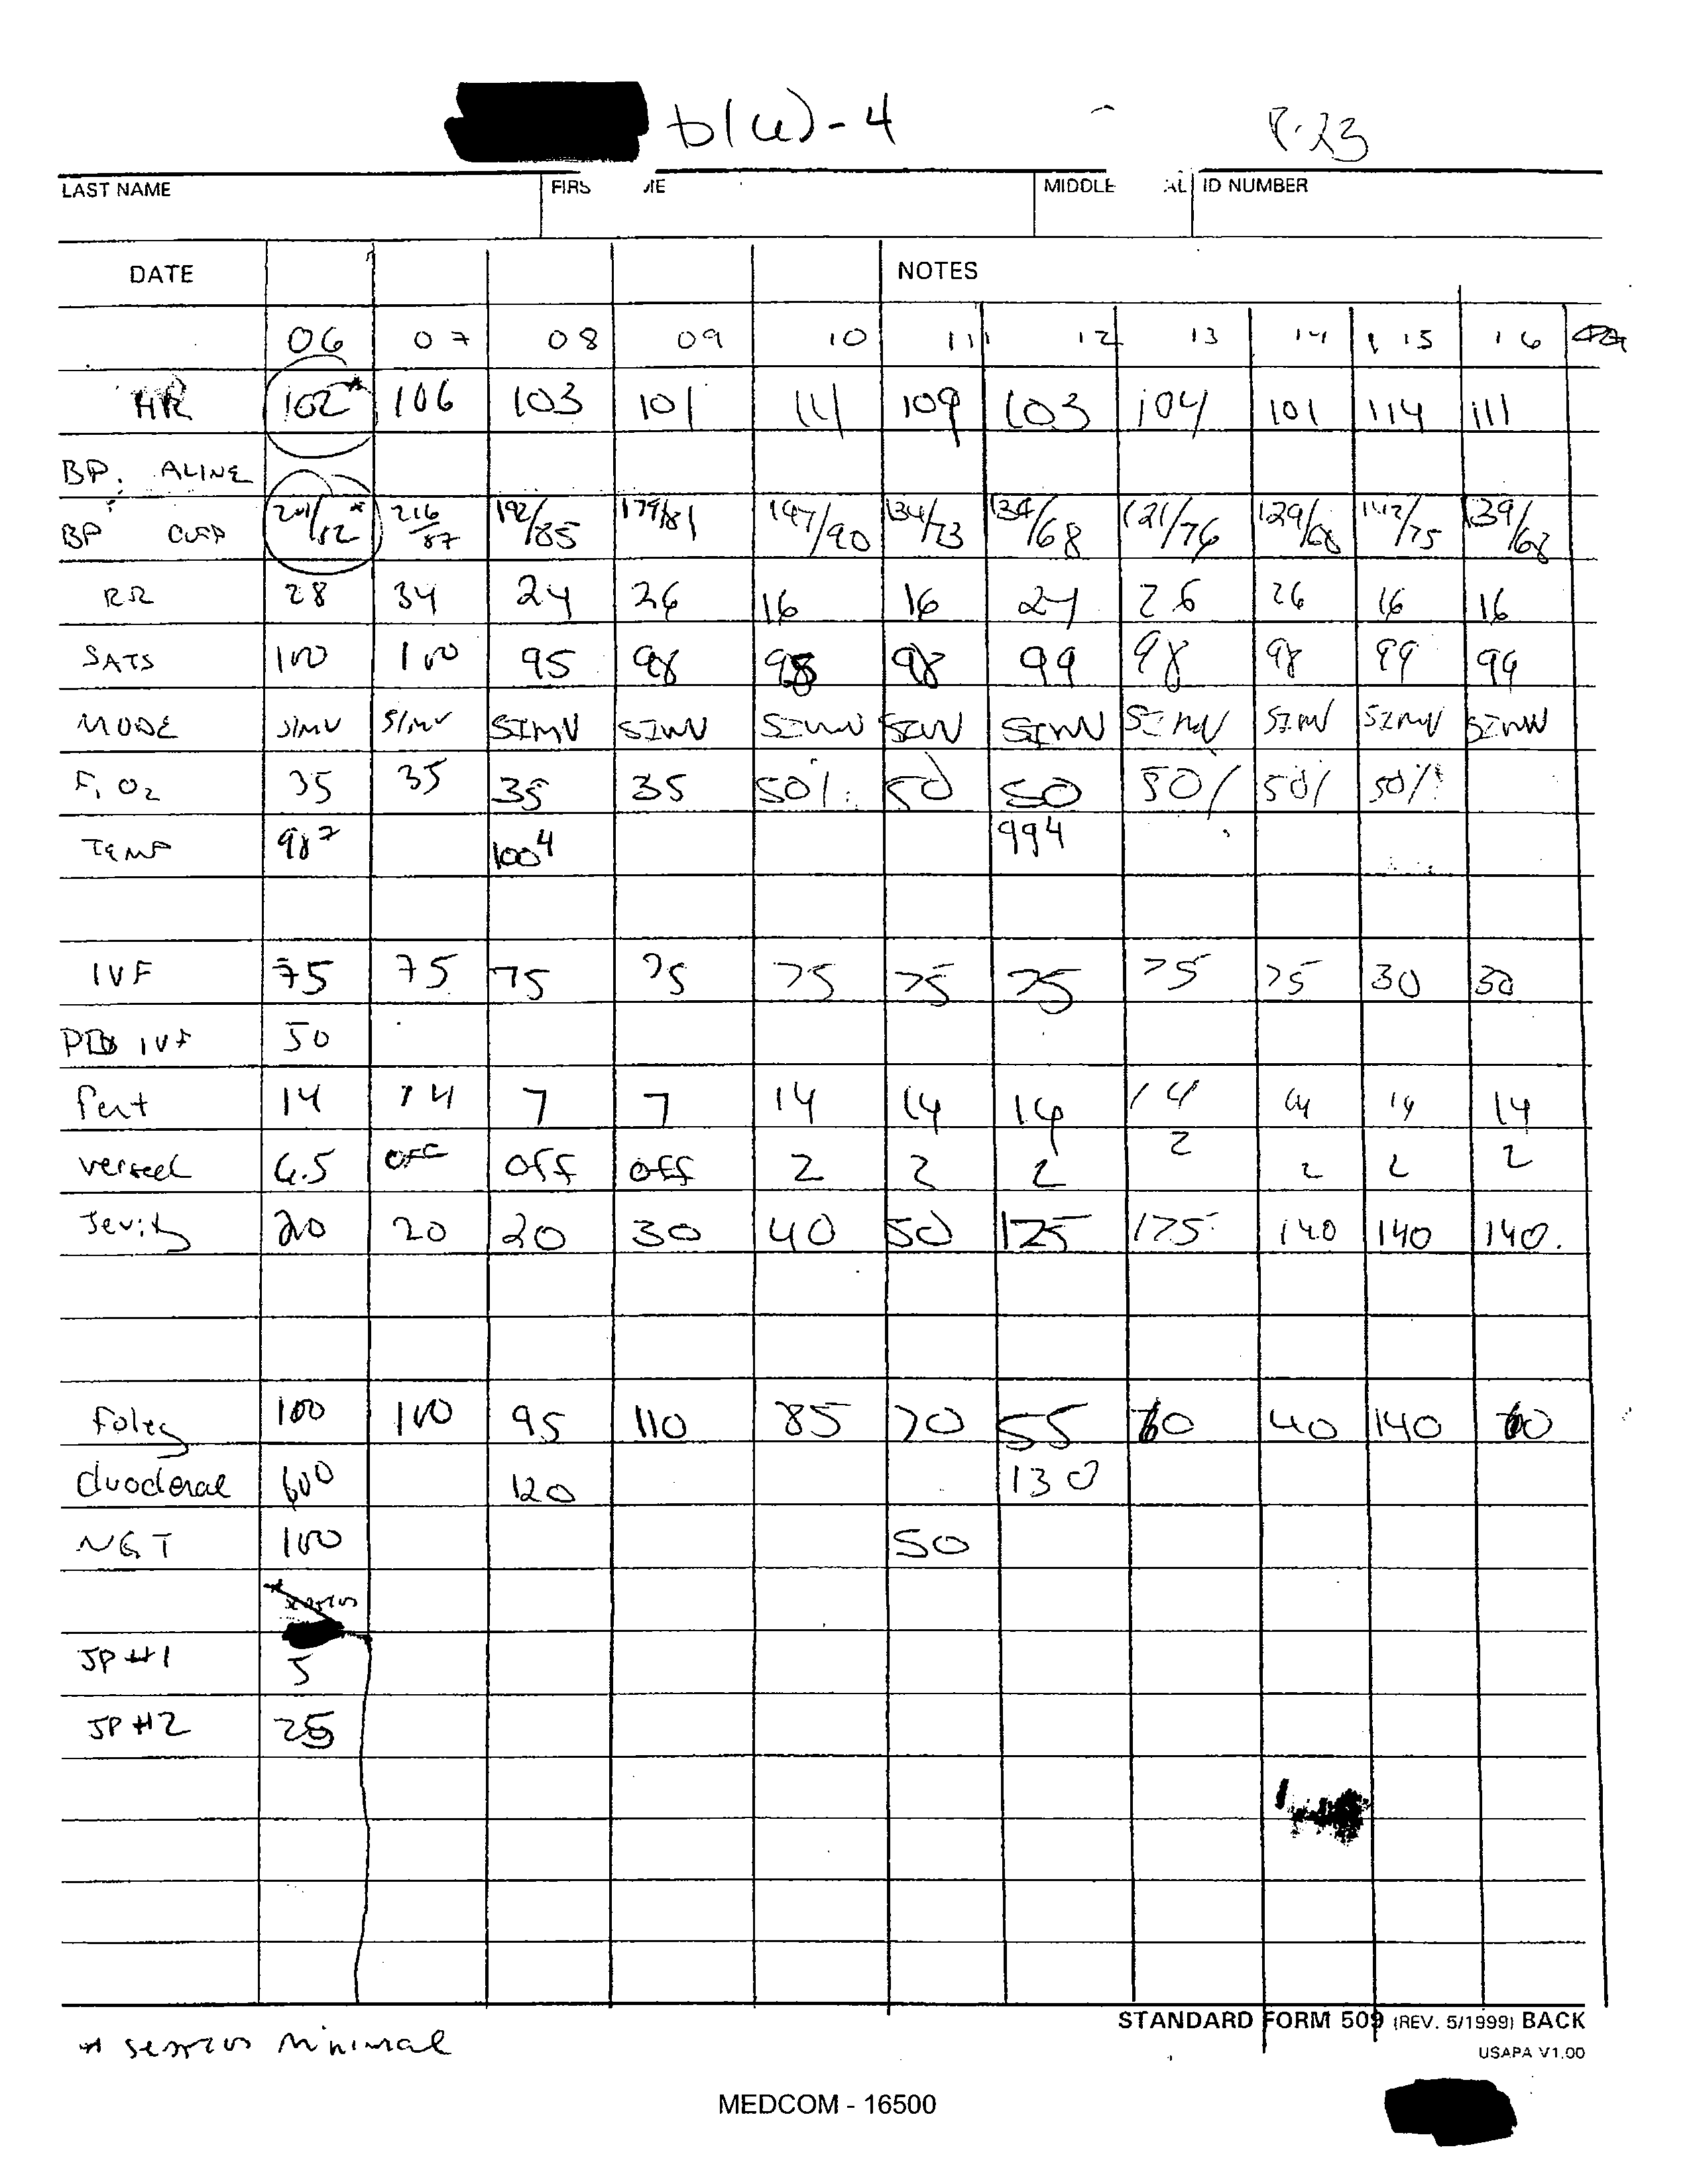 b(6)-4 8-23
LAST NAME FIRS ME MIDDLE AL ID NUMBER
DATE NOTES
06 07 08 09 10 11 12 13 14 15 16
HR 102* 106 103 101 111 109 103 104 101 114 111
BP: ALINE
BP CUFF 201/82* 216/87 192/85 179/81 147/90 134/73 134/68 121/76 129/68 142/75 139/68
RR 28 34 24 26 16 16 24 26 26 16 16
SATS 100 100 95 98 98 98 99 98 98 99 99
MODE SIMV SIMV SIMV SIMV SIMV SIMV SIMV SIMV SIMV SIMV SIMV
FiO2 35 35 35 35 50% 50 50 50% 50% 50%
TEMP 98⁷ 100⁴ 99⁴
IVF 75 75 75 75 75 75 75 75 75 30 30
IVF 50
Fent 14 14 7 7 14 14 14 14 14 14 14
versed 6.5 OFF Off Off 2 2 2 2 2 2 2
Jevity 20 20 20 30 40 50 175 175 140 140 140
Foley 100 100 95 110 85 70 55 40 140
duoderal 600 120 130
NGT 100 50
JP #1 5
JP #2 25
STANDARD FORM 509 (REV. 5/1999) BACK
* minimal
USAPA V1.00
MEDCOM - 16500